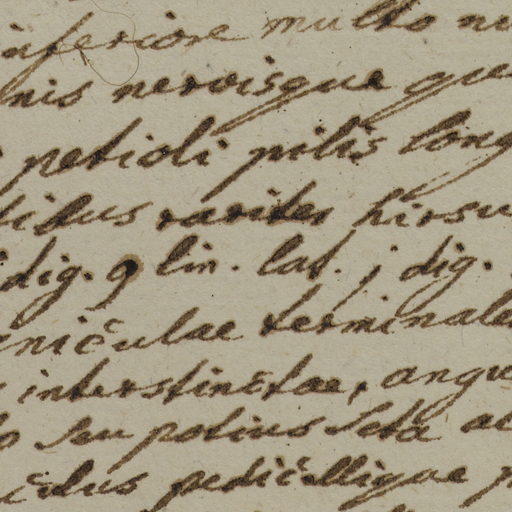 inferiore multo
nis nervisque
petioli pilis long
ibus rariter hirsu
dig. 9 lin. lat. j dig.
niculae terminale
interstinctae, angu
seu potius seta
pedicelligae